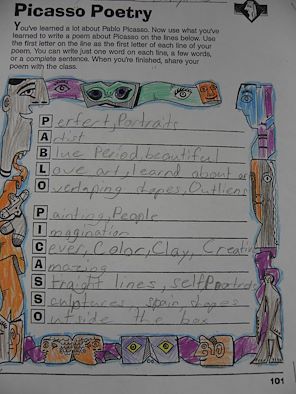 Picasso Poetry
You've learned a lot about Pablo Picasso. Now use what you've
learned to write a poem about Picasso on the lines below. Use
the first letter on the line as the first letter of each line of your
poem. You can write just one word on each line, a few words,
or a complete sentence. When you're finished, share your
poem with the class.
Perfert, Portraits
Artist
Blue Period, beautiful
Love art, learnd about
Overlaping shapes, Outliens
Painting, People
Imagination
Cever, Color, Clay, Creativ
Amazing
Straight lines, self
Sculptures, spain shapes
Outside the box
101